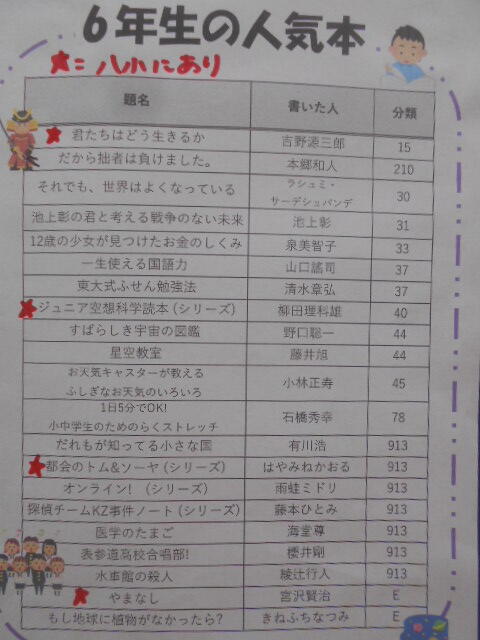 6年生の人気本
★=八小にあり
題名 書いた人 分類
★ 君たちはどう生きるか 吉野源三郎 15
だから拙者は負けました。 本郷和人 210
それでも、世界はよくなっている ラシュミ・サーデシュパンデ 30
池上彰の君と考える戦争のない未来 池上彰 31
12歳の少女が見つけたお金のしくみ 泉美智子 33
一生使える国語力 山口謠司 37
東大式ふせん勉強法 清水章弘 37
★ジュニア空想科学読本(シリーズ) 柳田理科雄 40
すばらしき宇宙の図鑑 野口聡一 44
星空教室 藤井旭 44
お天気キャスターが教える
ふしぎなお天気のいろいろ 小林正寿 45
1日5分でOK!
小中学生のためのらくストレッチ 石橋秀幸 78
だれもが知ってる小さな国 有川浩 913
★都会のトム&ソーヤ(シリーズ) はやみねかおる 913
オンライン! (シリーズ) 雨蛙ミドリ 913
探偵チームKZ事件ノート(シリーズ) 藤本ひとみ 913
医学のたまご 海堂尊 913
表参道高校合唱部! 櫻井剛 913
水車館の殺人 綾辻行人 913
★ やまなし 宮沢賢治 E
もし地球に植物がなかったら? きねふちなつみ E